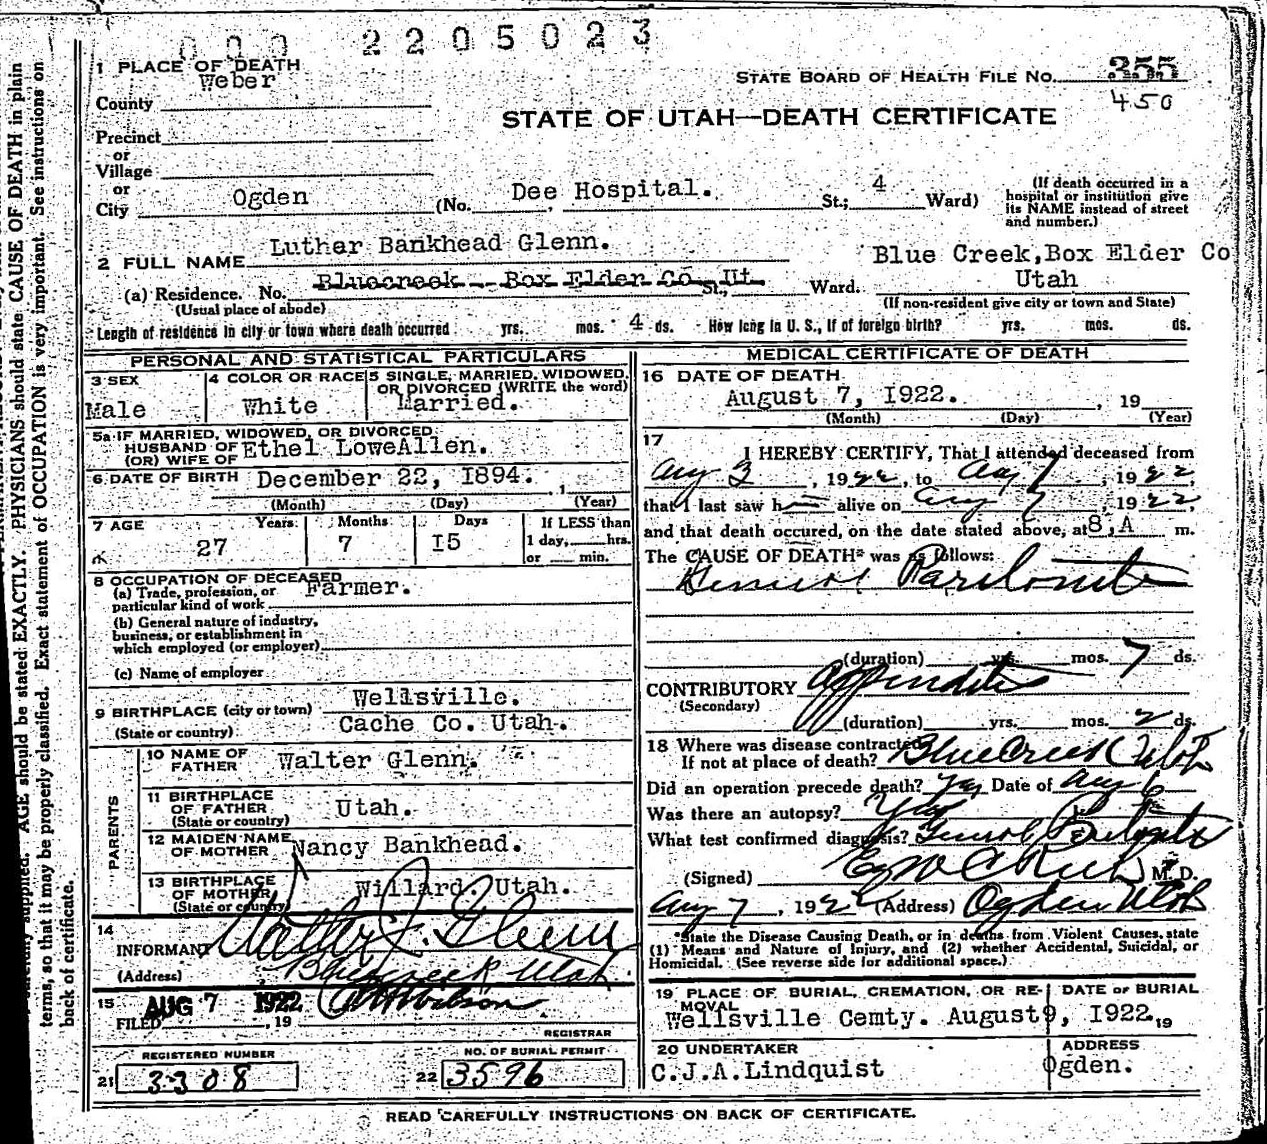 000 2205023
1 PLACE OF DEATH
Weber
STATE BOARD OF HEALTH FILE NO. 355
County
450
STATE OF UTAH—DEATH CERTIFICATE
Precinct
or
Village
or
City Ogden (No. Dee Hospital. St.; 4 Ward)
(If death occurred in a hospital or institution give its NAME instead of street and number.)
2 FULL NAME Luther Bankhead Glenn.
Blue Creek, Box Elder Co
Utah
(a) Residence. No. Bluecreek - Box Elder Co. Ut. St., Ward.
(Usual place of abode)
(If non-resident give city or town and State)
Length of residence in city or town where death occurred yrs. mos. 4 ds. How long in U. S., if of foreign birth? yrs. mos. ds.
PERSONAL AND STATISTICAL PARTICULARS
3 SEX
Male
4 COLOR OR RACE
White
5 SINGLE, MARRIED, WIDOWED, OR DIVORCED (WRITE the word)
Married.
5a IF MARRIED, WIDOWED, OR DIVORCED
HUSBAND OF
(OR) WIFE OF Ethel LoweAllen.
6 DATE OF BIRTH December 22, I894. , 1
(Month) (Day) (Year)
7 AGE Years Months Days If LESS than
27 7 I5 1 day, hrs.
or min.
8 OCCUPATION OF DECEASED
(a) Trade, profession, or particular kind of work Farmer.
(b) General nature of industry,
business, or establishment in
which employed (or employer)
(c) Name of employer
9 BIRTHPLACE (city or town) Wellsville.
(State or country) Cache Co. Utah.
PARENTS
10 NAME OF FATHER Walter Glenn.
11 BIRTHPLACE OF FATHER Utah.
(State or country)
12 MAIDEN NAME OF MOTHER Nancy Bankhead.
13 BIRTHPLACE OF MOTHER Willard. Utah.
(State or country)
14
INFORMANT Walter J. Glenn
(Address) Bluecreek Utah
15 AUG 7 1922
FILED , 19
REGISTRAR
REGISTERED NUMBER
21 3308
NO. OF BURIAL PERMIT
22 3596
MEDICAL CERTIFICATE OF DEATH
16 DATE OF DEATH
August 7, I922. , 19
(Month) (Day) (Year)
17
I HEREBY CERTIFY, That I attended deceased from
Aug 3 , 1922, to Aug 7 , 1922,
that I last saw h alive on Aug 7 , 1922,
and that death occured, on the date stated above, at 8,A m.
The CAUSE OF DEATH* was as follows:
General Peritonitis
(duration) yrs. mos. 7 ds.
CONTRIBUTORY Appendicitis
(Secondary)
(duration) yrs. mos. 2 ds.
18 Where was disease contracted
If not at place of death? Blue Creek Utah
Did an operation precede death? Yes Date of Aug 6
Was there an autopsy?
What test confirmed diagnosis? General Peritonitis
(Signed) Rich M. D.
Aug 7 , 1922 (Address) Ogden Utah
*State the Disease Causing Death, or in deaths from Violent Causes, state
(1) Means and Nature of Injury, and (2) whether Accidental, Suicidal, or
Homicidal. (See reverse side for additional space.)
19 PLACE OF BURIAL, CREMATION, OR REMOVAL
DATE OF BURIAL
Wellsville Cemty. August 9, I922. 19
20 UNDERTAKER
C.J.A.Lindquist
ADDRESS
Ogden.
READ CAREFULLY INSTRUCTIONS ON BACK OF CERTIFICATE.
AGE should be stated EXACTLY. PHYSICIANS should state CAUSE OF DEATH in plain
terms, so that it may be properly classified. Exact statement of OCCUPATION is very important. See instructions on
back of certificate.